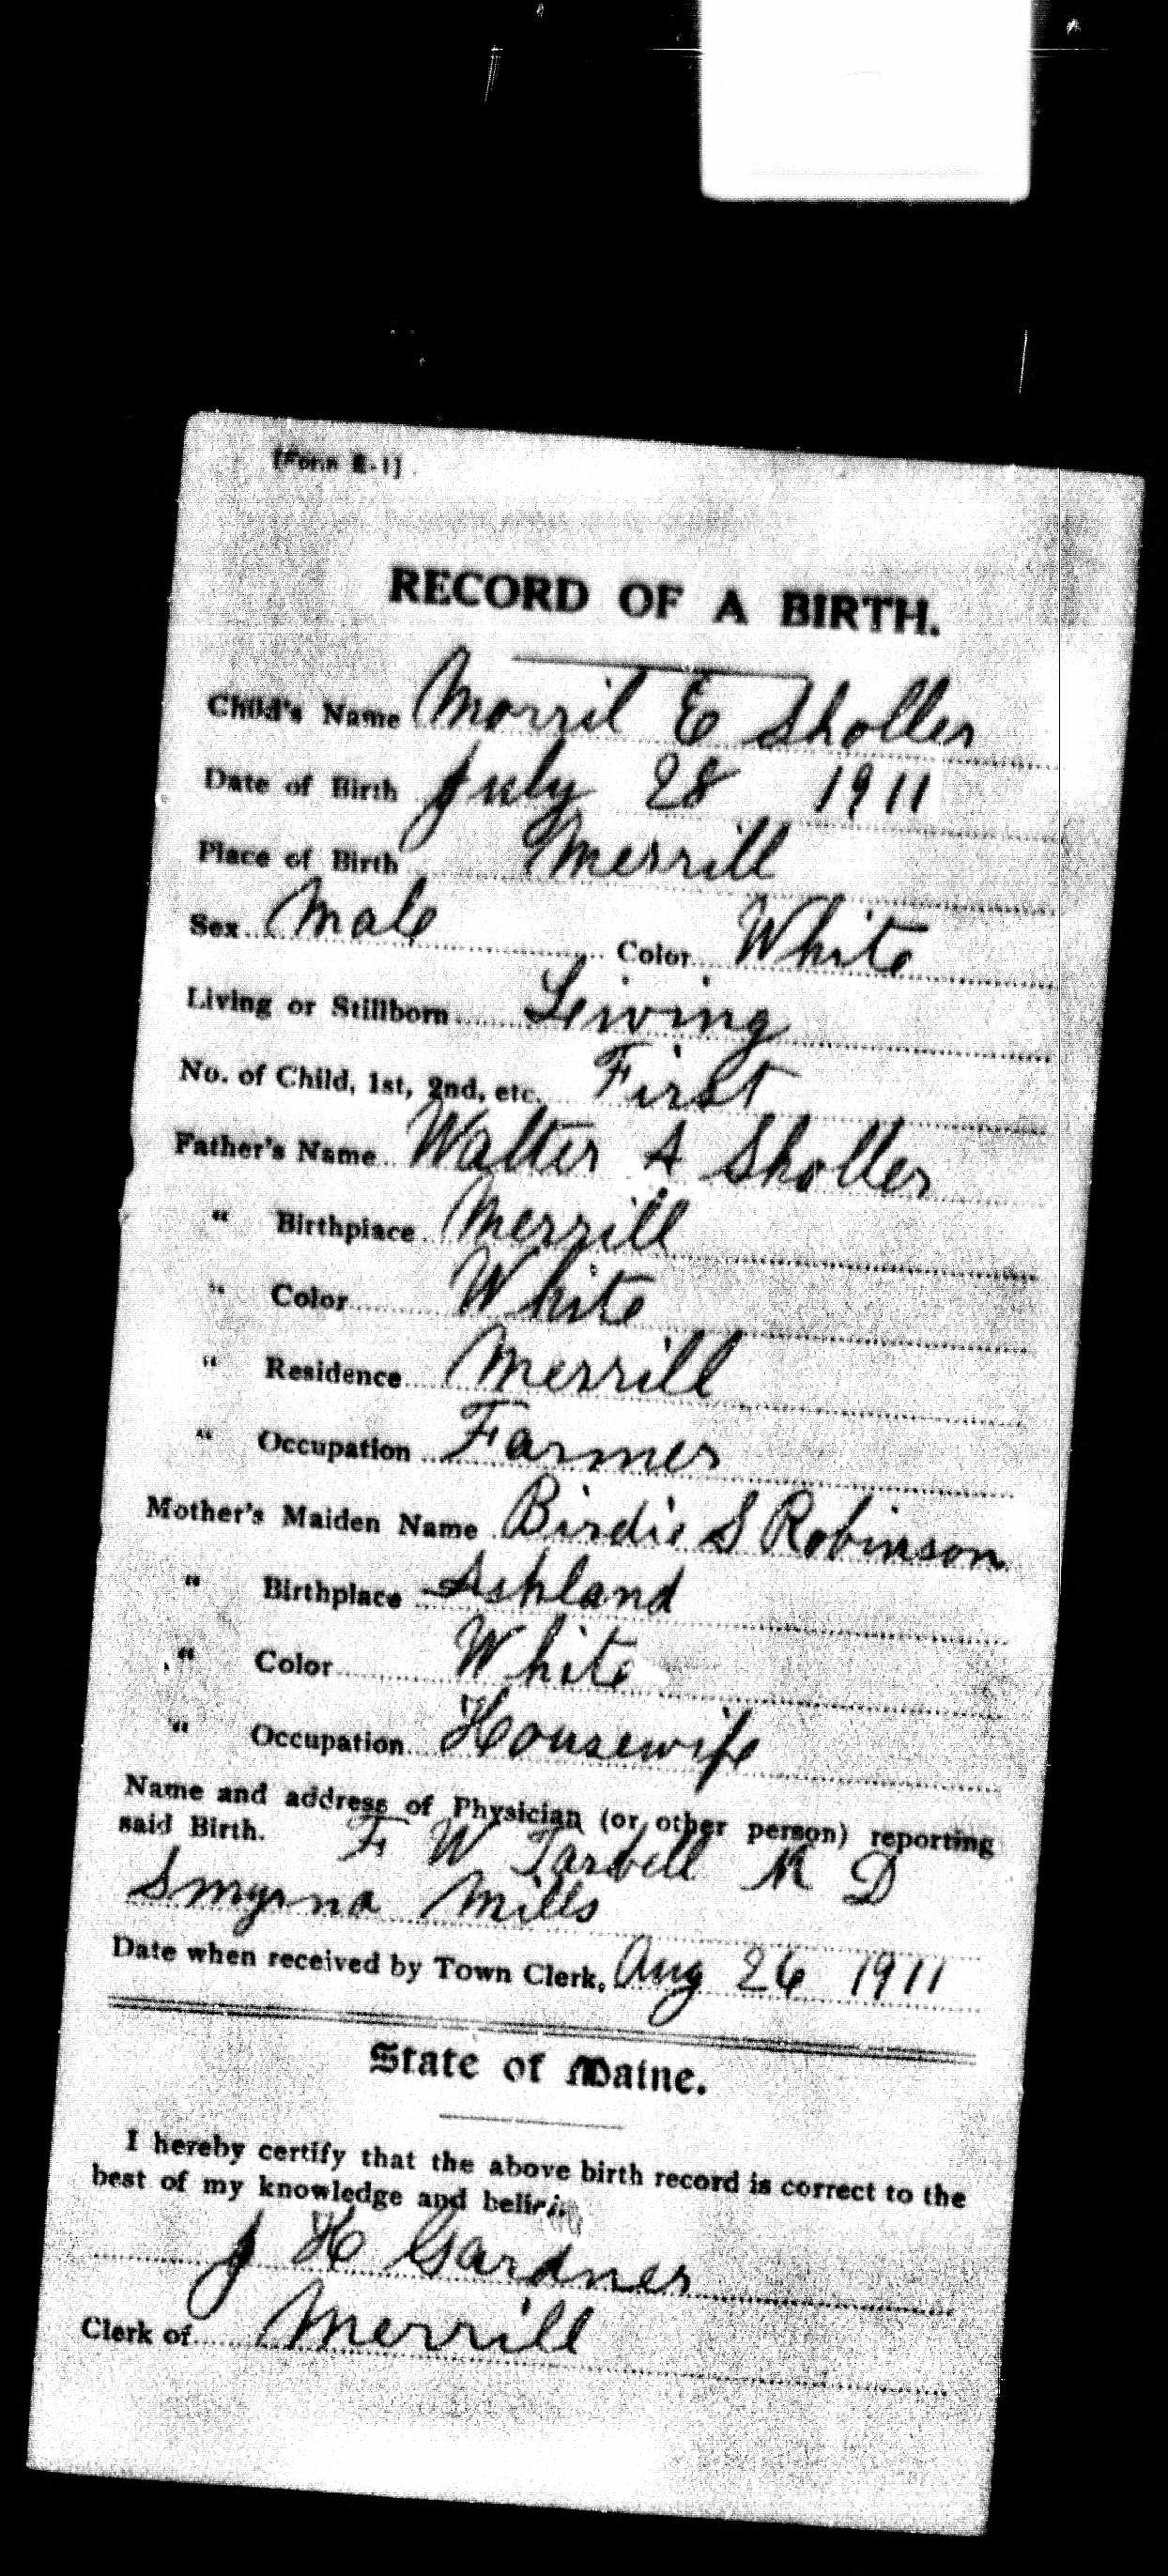 [Form E-1]
RECORD OF A BIRTH.
Child's Name Morril E Sholler
Date of Birth July 28 1911
Place of Birth Merrill
Sex Male Color White
Living or Stillborn Living
No. of Child, 1st, 2nd, etc. First
Father's Name Walter A Sholler
" Birthplace Merrill
" Color White
" Residence Merrill
" Occupation Farmer
Mother's Maiden Name Birdie S Robinson
" Birthplace Ashland
" Color White
" Occupation Housewife
Name and address of Physician (or other person) reporting
said Birth. F W Tarbell M D
Smyrna Mills
Date when received by Town Clerk, Aug 26 1911
State of Maine.
I hereby certify that the above birth record is correct to the
best of my knowledge and belief.
J H Gardner
Clerk of Merrill